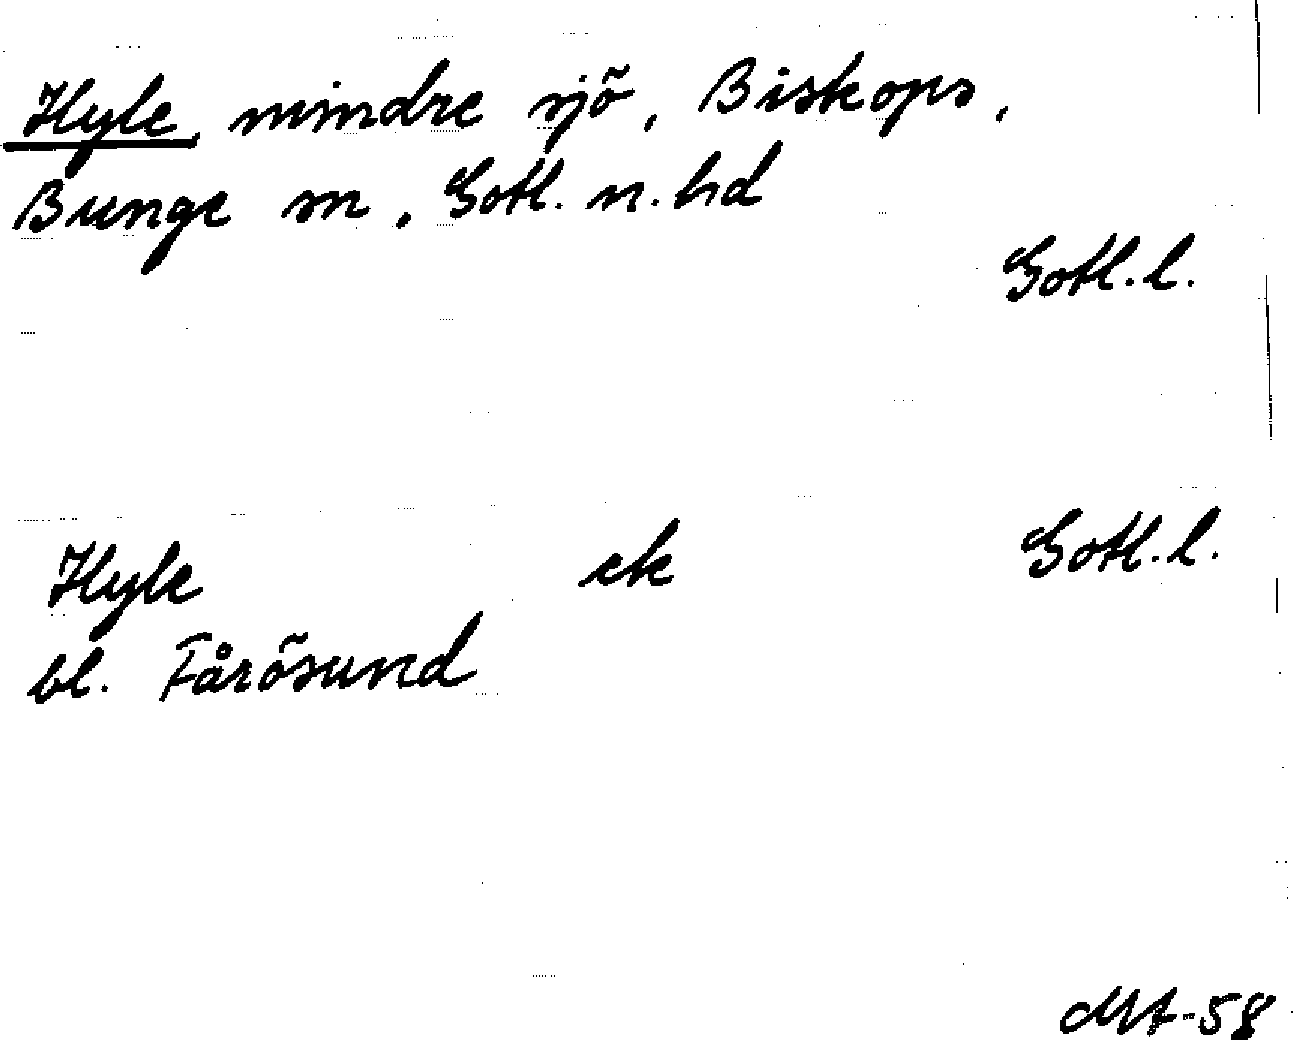 Hyle, mindre sjö, Biskops,
Bunge sn, Gotl. n. hd
Gotl. l.
Hyle ek Gotl. l.
bl. Fårösund
MA-58